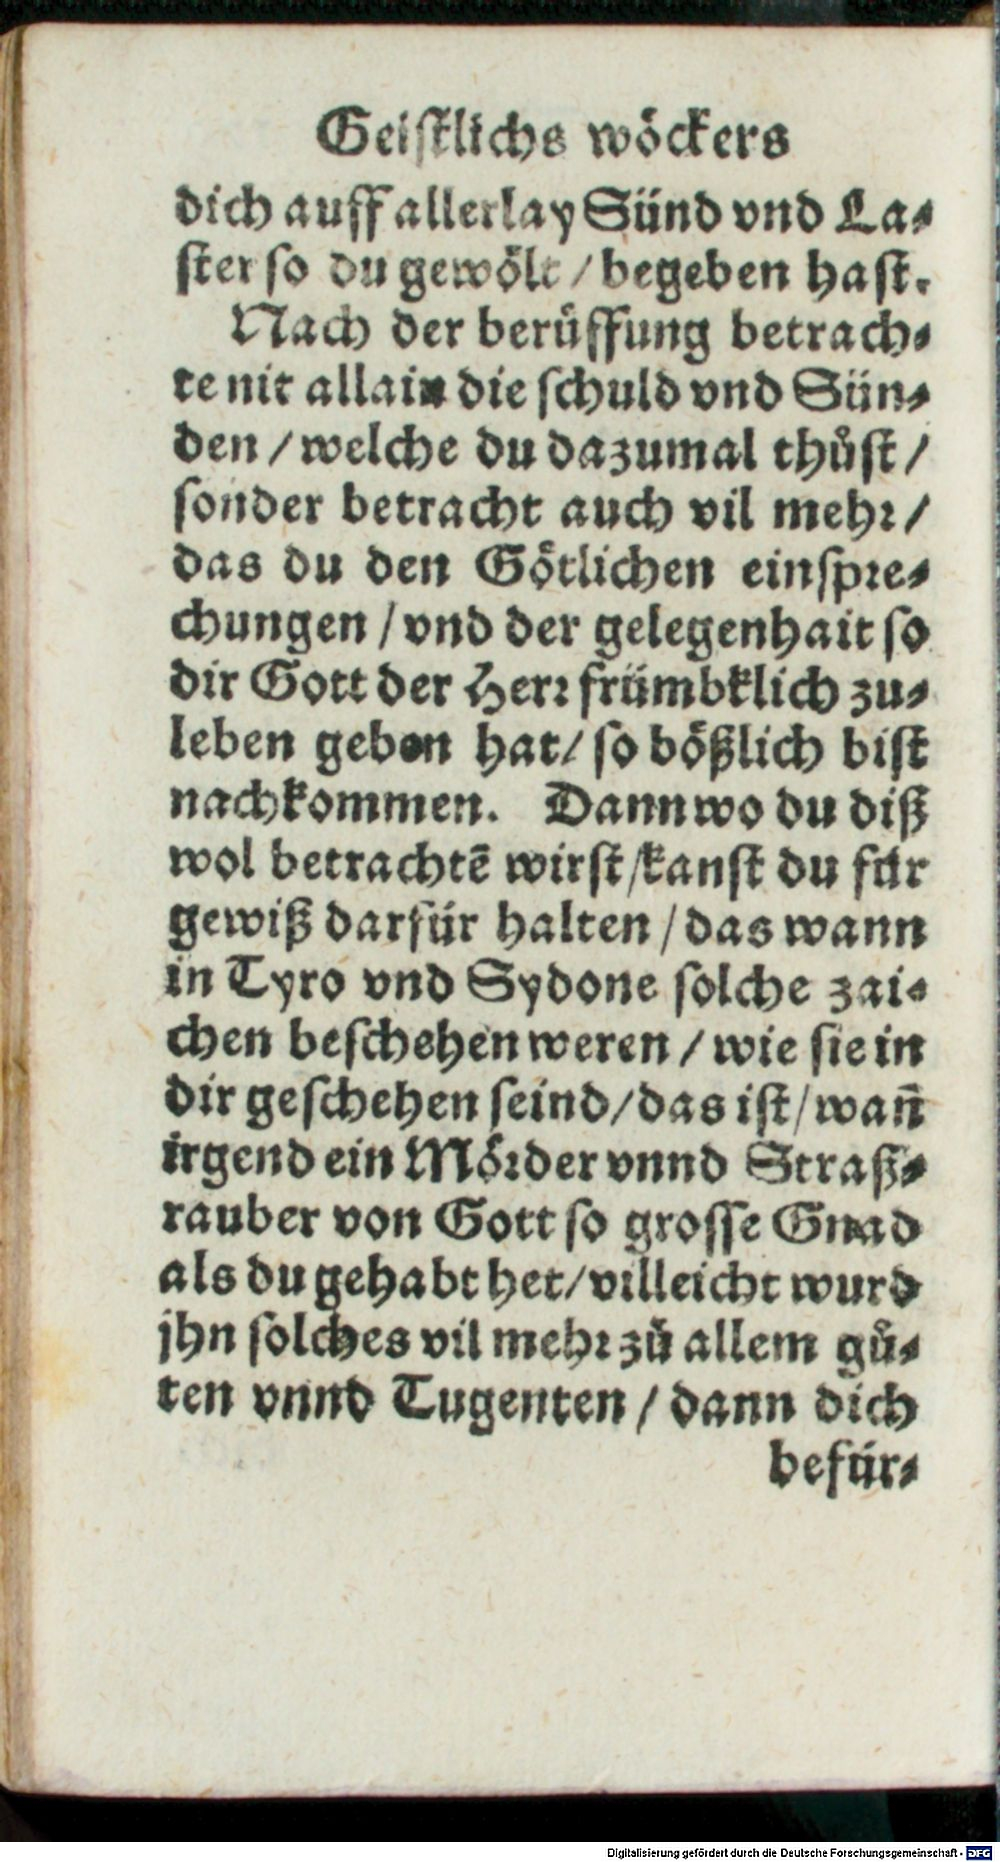 Geistlichs wöckers
dich auff allerlay Sünd vnd La-
ster so du gewölt / begeben hast.
Nach der berůffung betrach-
te nit allain die schuld vnd Sün-
den / welche du dazumal thůst /
sonder betracht auch vil mehr /
das du den Götlichen einspre-
chungen / vnd der gelegenhait so
dir Gott der Herr frümbklich zu-
leben geben hat / so bößlich bist
nachkommen. Dann wo du diß
wol betrachtē wirst / kanst du für
gewiß darfür halten / das wann
in Tyro vnd Sydone solche zai-
chen beschehen weren / wie sie in
dir geschehen seind / das ist / wañ
irgend ein Mörder vnnd Straß-
rauber von Gott so grosse Gnad
als du gehabt het / villeicht wurd
jhn solches vil mehr zů allem gů-
ten vnnd Tugenten / dann dich
befür-
Digitalisierung gefördert durch die Deutsche Forschungsgemeinschaft - DFG